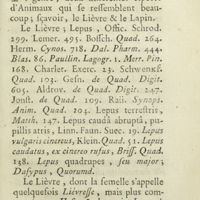 d'Animaux qui se ressemblent beau-
coup; sçavoir, le Lièvre & le Lapin.
Le Lièvre; Lepus, Offic. Schrod.
299. Lemer. 495. Bosch. Quad. 264.
Herm. Cynos. 718. Dal. Pharm. 444.
Blas. 86. Paullin. Lagogr. 1. Mer. Pin.
168. Charlet. Exerc. 23. Schwenkf.
Quad. 103. Gesn. de Quad. Digit.
605. Aldrov. de Quad. Digit. 247.
Jonst. de Quad. 109. Raii. Synops.
Anim. Quad. 204. Lepus terrestris,
Math. 147. Lepus caudâ abruptâ, pu-
pillis atris, Linn. Faun. Suec. 19. Lepus
vulgaris cinereus, Klein. Quad. 51. Lepus
caudatus, ex cinereo rufus, Briss. Quad.
138. Lepus quadrupes, seu major;
Dasypus, Quorumd.
Le Lièvre, dont la femelle s'appelle
quelquefois Lievresse, mais plus com-